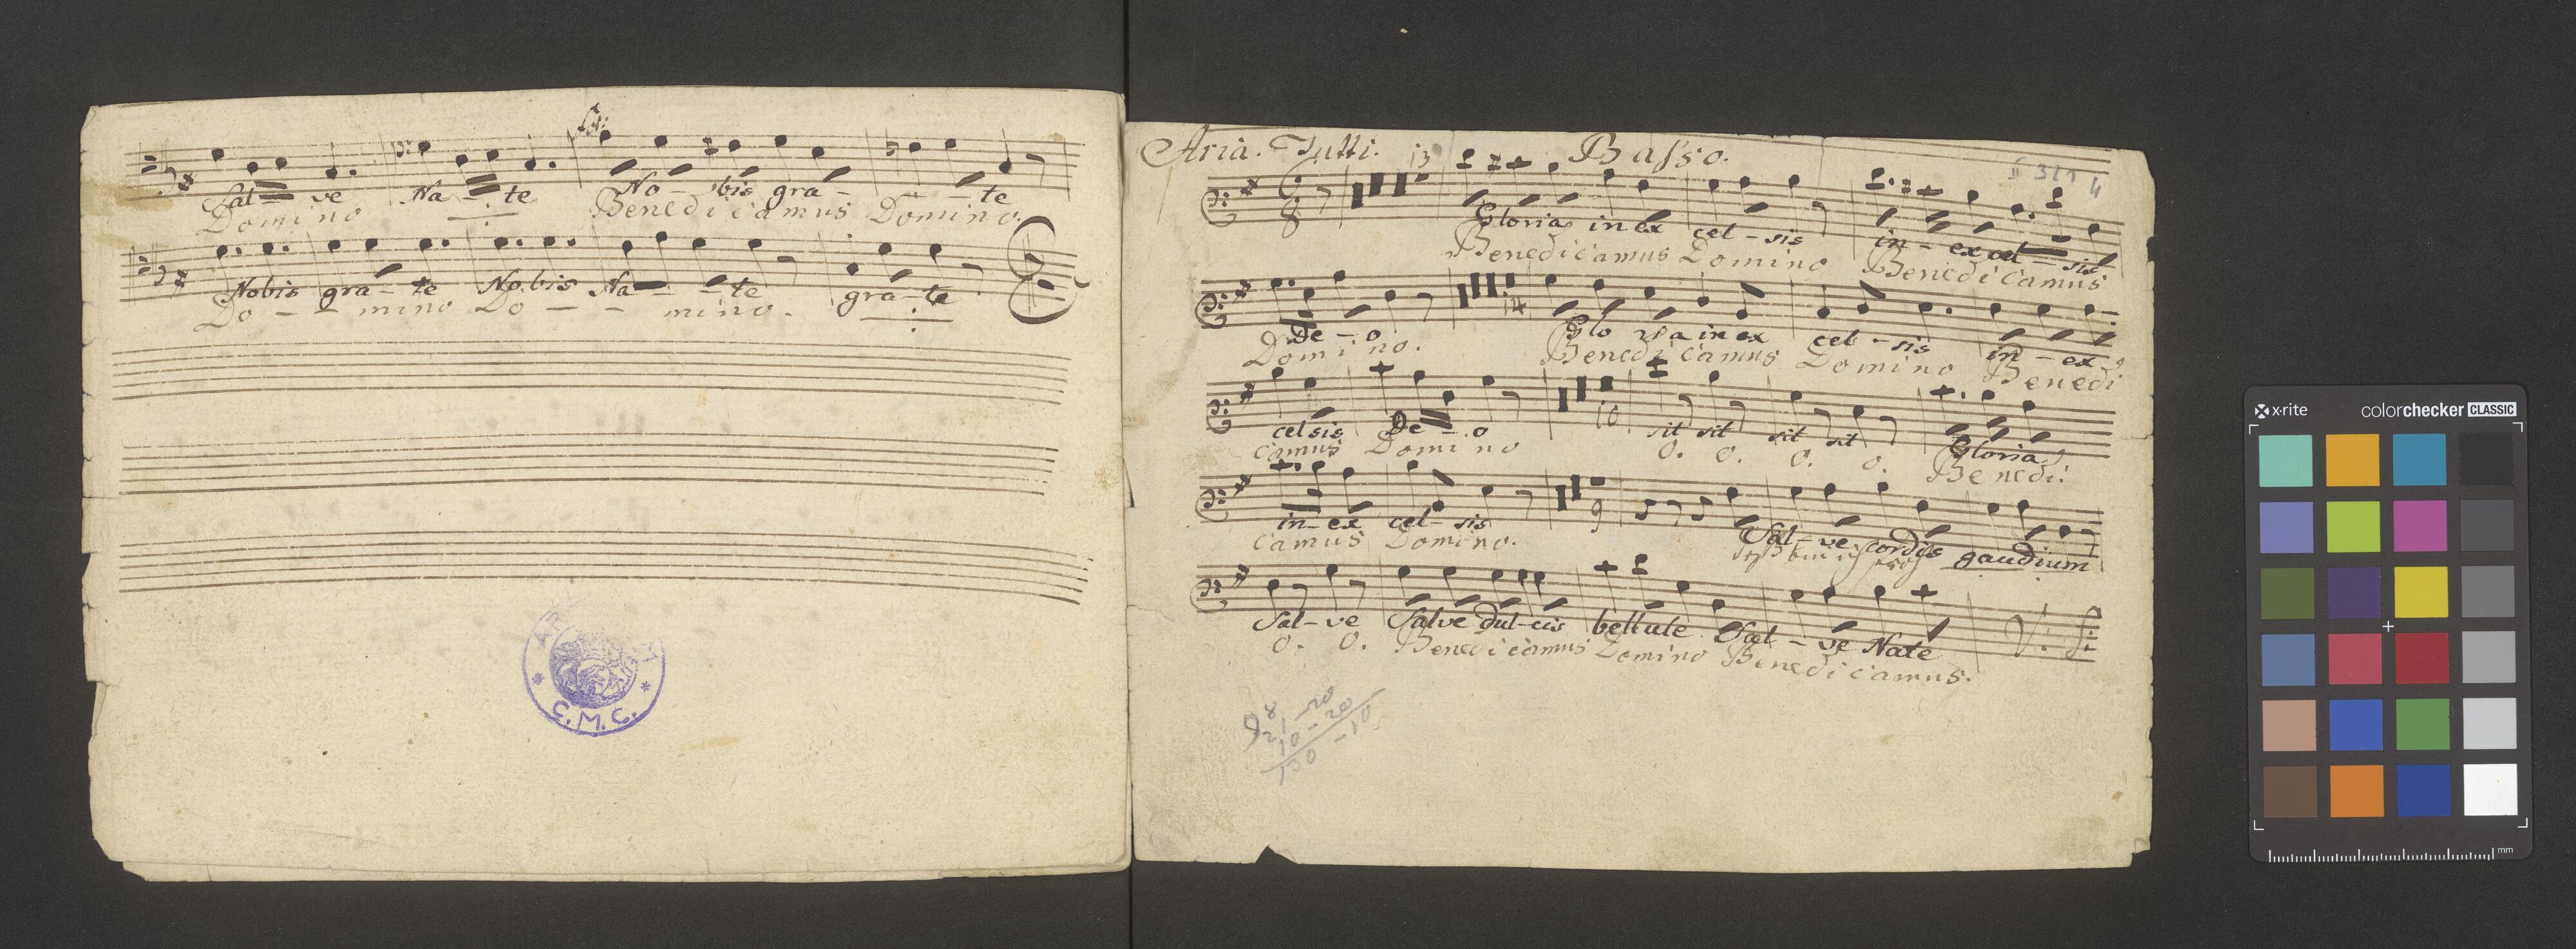 fs:
Sal - ve Na - te No - bis gra - te
Domino Benedicamus Domino.
Nobis gra - te Nobis Na - te gra - te
Do - - mino Do - - mino.
C.M.C.
Aria. Tutti. Basso.
II 321 4
13
Gloria in ex cel - sis in - ex cel - sis
Benedicamus Domino Benedicamus
14
De - o Glo ria in ex cel - sis in - ex
Domino. Benedicamus Domino Benedi
10
celsis De - o sit sit sit sit Gloria
camus Domino O. O. O. O. Benedi:
9
in - ex cel - sis Sal - ve cordis gaudium
camus Domino.
Sal - ve Salve dul - cis bellule Sal - ve Nate
O. O. Benedicamus Domino Benedicamus.
V. S:
x-rite colorchecker CLASSIC
mm